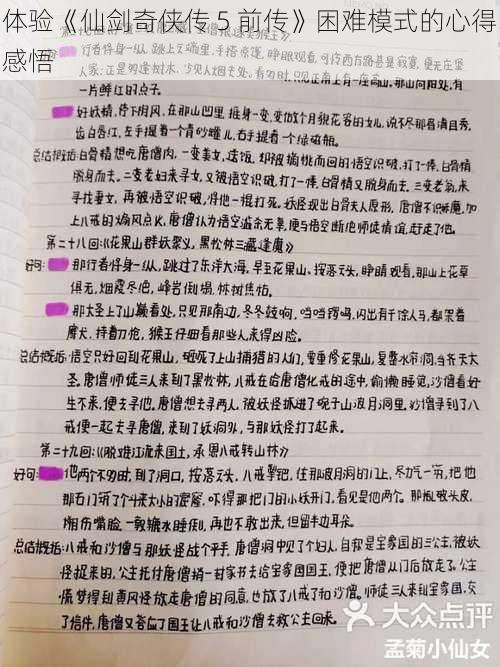 体验《仙剑奇侠传 5 前传》困难模式的心得
感悟
家：正是那逢树木，沙见人烟去处。看的时，只见正南上有一座高山，那山向阳处，有
一片鲜红的点子。
好妖精，停下阴风，在那山凹里，摇身一变，变做个月貌花容的女儿，说不尽那眉清目秀，
齿白唇红，左手提着一个青砂罐儿，右手提着一个绿磁瓶。
总结概括：白骨精想吃唐僧肉，一变美女，送饭，却被摘桃而回的悟空识破，打了一棒，白骨精
脱身而去。二变老妇来寻女，又被悟空识破，打了一棒；白骨精又脱身而去，三变老翁来
寻找妻女，再被悟空识破，将他一棍打死，妖怪现出白骨夫人原形，唐僧不识妖魔，加
上八戒的煽风点火，唐僧认为悟空滥杀无辜，便与悟空断绝师徒情谊，赶走了他。
第二十八回：《花果山群妖聚义，黑松林三藏逢魔》
好句：那行者将身一纵，跳过了东洋大海，早至花果山，按落云头，睁睛观看，那山上花草
俱无，烟霞尽绝，峰岩倒塌，林树焦枯。
那大圣上了山巅看处，只见那南边，冬冬鼓响，当当锣鸣，闪出有千余人马，都架着
鹰犬，持着刀枪，猴王仔细看那些人来得凶险。
总结概括：悟空只好回到花果山，砸死了上山捕猎的人们，要重修花果山，复整水帘洞，当齐天大
圣。唐僧师徒三人来到了黑松林，八戒在给唐僧化斋的途中，偷懒睡觉，沙僧看好
生不来，便去寻他。唐僧想去寻两人，被妖怪抓进了碗子山波月洞里。沙僧寻到了八
戒便一起去寻唐僧，来到了妖洞外，与那妖怪打了起来。
第二十九回：《脱难江流来国土，承恩八戒转山林》
好句：他两个不多时，到了洞口，按落云头，八戒掣钯，往那波月洞的门上，尽力气一筑，把他
那石门筑了个斗来大小的窟窿，吓得那把门的小妖开门，看见是他两个。
总结概括：八戒和沙僧与那妖怪战个平手，唐僧洞中见了个妇人，自称是宝象国的三公主，被妖
怪捉来的，公主托付唐僧捎一封家书去给宝象国国王，便把唐僧从后门放走了。公主
了信件，唐僧又答应了国王让八戒和沙僧去救公主回来。
大众点评
孟菊小仙女